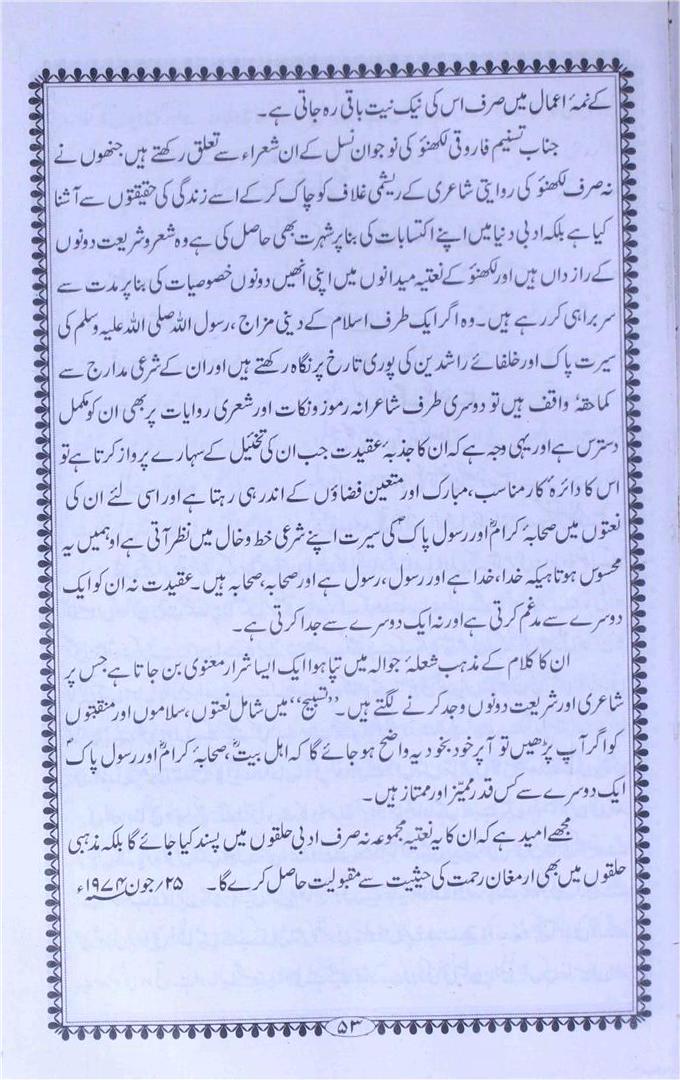 کے نمۂ اعمال میں صرف اس کی نیک نیت باقی رہ جاتی ہے۔
جناب تسنیم فاروقی لکھنؤ کی نوجوان نسل کے ان شعراء سے تعلق رکھتے ہیں جنھوں نے
نہ صرف لکھنؤ کی روایتی شاعری کے ریشمی غلاف کو چاک کر کے اسے زندگی کی حقیقتوں سے آشنا
کیا ہے بلکہ ادبی دنیا میں اپنے اکتسابات کی بنا پر شہرت بھی حاصل کی ہے وہ شعر و شریعت دونوں
کے رازداں ہیں اور لکھنؤ کے نعتیہ میدانوں میں اپنی انھیں دونوں خصوصیات کی بنا پر مدت سے
سربراہی کر رہے ہیں۔ وہ اگر ایک طرف اسلام کے دینی مزاج ، رسول اللہ صلی اللہ علیہ وسلم کی
سیرت پاک اور خلفائے راشدین کی پوری تارخ پر نگاہ رکھتے ہیں اور ان کے شرعی مدارج سے
کماحقہٗ واقف ہیں تو دوسری طرف شاعرانہ رموز و نکات اور شعری روایات پر بھی ان کو مکمل
دسترس ہے اور یہی وجہ ہے کہ ان کا جذبۂ عقیدت جب ان کی تخئیل کے سہارے پرواز کرتا ہے تو
اس کا دائرۂ کار مناسب ، مبارک اور متعین فضاؤں کے اندر ہی رہتا ہے اور اسی لئے ان کی
نعتوں میں صحابۂ کرامؓ اور رسول پاکؐ کی سیرت اپنے شرعی خط و خال میں نظر آتی ہے او ہمیں یہ
محسوس ہوتا ہیکہ خدا، خدا ہے اور رسول، رسول ہے اور صحابہ، صحابہ ہیں۔ عقیدت نہ ان کو ایک
دوسرے سے مدغم کرتی ہے اور نہ ایک دوسرے سے جدا کرتی ہے۔
ان کا کلام کے مذہب شعلۂ جوالہ میں تپا ہوا ایک ایسا شرار معنوی بن جاتا ہے جس پر
شاعری اور شریعت دونوں وجد کرنے لگتے ہیں۔ ’’تسبیح‘‘ میں شامل نعتوں، سلاموں اور منقبتوں
کو اگر آپ پڑھیں تو آپر خود بخود یہ واضح ہو جائے گا کہ اہل بیتؓ، صحابۂ کرامؓ اور رسول پاکؐ
ایک دوسرے سے کس قدر ممیّز اور ممتاز ہیں۔
مجھے امید ہے کہ ان کا یہ نعتیہ مجموعہ نہ صرف ادبی حلقوں میں پسند کیا جائے گا بلکہ مذہبی
حلقوں میں بھی ارمغان رحمت کی حیثیت سے مقبولیت حاصل کرے گا۔ ۲۵؍جون ۱۹۷۴ء
۵۳